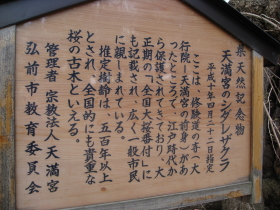 県天然記念物
天満宮のシダレザクラ
平成十年四月二十二日指定
ここは、修験道の寺・大
行院(天満宮の前身)があ
ったところで、江戸時代か
ら保護されてきており、大
正期の「全国大桜番付」に
も記載され、広く一般市民
に親しまれている。
推定樹齢は、五百年以上
とされ、全国的にも貴重な
桜の古木といえる。
管理者 宗教法人 天満宮
弘前市教育委員会